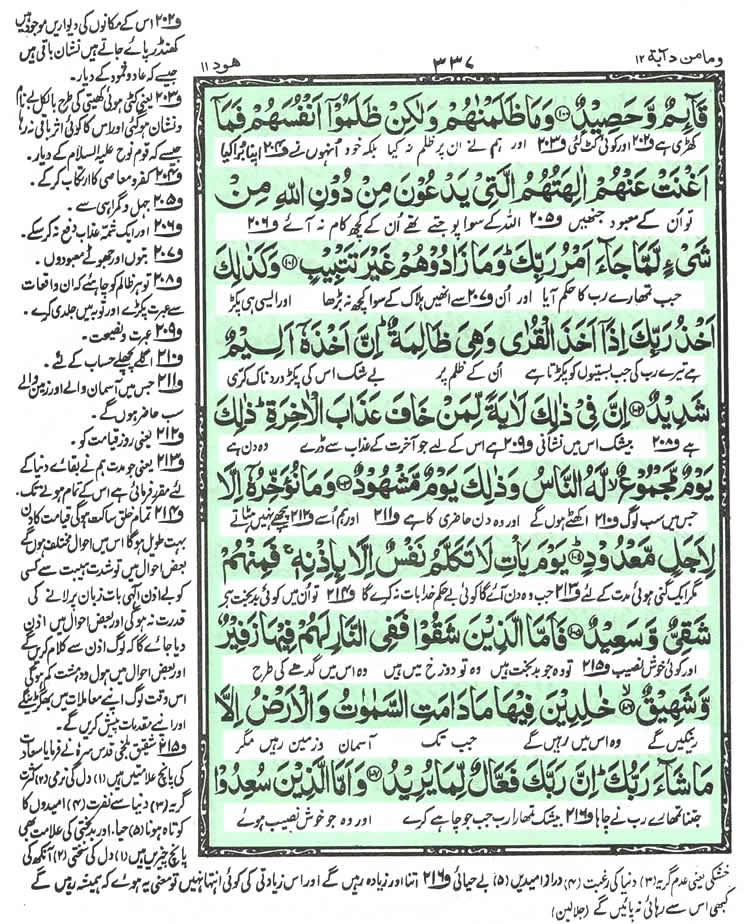 وما من دآبة ۱۲
۳۳۷
هود ۱۱
قَآئِمٌ وَّحَصِيْدٌ ﴿۱۰۰﴾ وَمَا ظَلَمْنٰهُمْ وَلٰكِنْ ظَلَمُوْۤا اَنْفُسَهُمْ فَمَاۤ
کھڑی ہے و۲۰۲ اور کوئی کٹ گئی و۲۰۳ اور ہم نے ان پر ظلم نہ کیا بلکہ خود انہوں نے و۲۰۴ اپنا برا کیا
اَغْنَتْ عَنْهُمْ اٰلِهَتُهُمُ الَّتِيْ يَدْعُوْنَ مِنْ دُوْنِ اللّٰهِ مِنْ
تو ان کے معبود جنھیں و۲۰۵ اللہ کے سوا پوجتے تھے ان کے کچھ کام نہ آئے و۲۰۶
شَيْءٍ لَّمَّا جَآءَ اَمْرُ رَبِّكَ ؕ وَمَا زَادُوْهُمْ غَيْرَ تَتْبِيْبٍ ﴿۱۰۱﴾ وَكَذٰلِكَ
جب تمھارے رب کا حکم آیا اور ان و۲۰۷ سے انھیں ہلاک کے سوا کچھ نہ بڑھا اور ایسی ہی پکڑ
اَخْذُ رَبِّكَ اِذَاۤ اَخَذَ الْقُرٰى وَهِيَ ظَالِمَةٌ ؕ اِنَّ اَخْذَهٗۤ اَلِيْمٌ
ہے تیرے رب کی جب بستیوں کو پکڑتا ہے ان کے ظلم پر بے شک اس کی پکڑ دردناک کرّی
شَدِيْدٌ ﴿۱۰۲﴾ اِنَّ فِيْ ذٰلِكَ لَاٰيَةً لِّمَنْ خَافَ عَذَابَ الْاٰخِرَةِ ؕ ذٰلِكَ
ہے و۲۰۸ بیشک اس میں نشانی و۲۰۹ ہے اس کے لیے جو آخرت کے عذاب سے ڈرے وہ دن ہے
يَوْمٌ مَّجْمُوْعٌ ۙ لَّهُ النَّاسُ وَذٰلِكَ يَوْمٌ مَّشْهُوْدٌ ﴿۱۰۳﴾ وَمَا نُؤَخِّرُهٗۤ اِلَّا
جس میں سب لوگ و۲۱۰ اکٹھے ہوں گے اور وہ دن حاضری کا ہے و۲۱۱ اور ہم اسے و۲۱۲ پیچھے نہیں ہٹاتے
لِاَجَلٍ مَّعْدُوْدٍ ﴿۱۰۴﴾ يَوْمَ يَاْتِ لَا تَكَلَّمُ نَفْسٌ اِلَّا بِاِذْنِهٖ ۚ فَمِنْهُمْ
مگر ایک گنی ہوئی مدت کے لئے و۲۱۳ جب وہ دن آئے گا کوئی بے حکم خدا بات نہ کرے گا و۲۱۴ تو ان میں کوئی بدبخت ہے
شَقِيٌّ وَّسَعِيْدٌ ﴿۱۰۵﴾ فَاَمَّا الَّذِيْنَ شَقُوْا فَفِي النَّارِ لَهُمْ فِيْهَا زَفِيْرٌ
اور کوئی خوش نصیب و۲۱۵ تو وہ جو بدبخت ہیں وہ تو دوزخ میں ہیں وہ اس میں گدھے کی طرح
وَّشَهِيْقٌ ﴿۱۰۶﴾ خٰلِدِيْنَ فِيْهَا مَا دَامَتِ السَّمٰوٰتُ وَالْاَرْضُ اِلَّا
رینکیں گے وہ اس میں رہیں گے جب تک آسمان و زمین رہیں مگر
مَا شَآءَ رَبُّكَ ؕ اِنَّ رَبَّكَ فَعَّالٌ لِّمَا يُرِيْدُ ﴿۱۰۷﴾ وَاَمَّا الَّذِيْنَ سُعِدُوْا
جتنا تمھارے رب نے چاہا و۲۱۶ بیشک تمھارا رب جب جو چاہے کرے اور وہ جو خوش نصیب ہوئے
و۲۰۲ اس کے مکانوں کی دیواریں موجود ہیں
کھنڈر پائے جاتے ہیں نشان باقی ہیں
جیسے کہ عاد و ثمود کے دیار۔
و۲۰۳ یعنی کٹی ہوئی کھیتی کی طرح بالکل بے نام
و نشان ہوگئی اور اس کا کوئی اثر باقی نہ رہا
جیسے کہ قوم نوح علیہ السلام کے دیار۔
و۲۰۴ کفر و معاصی کا ارتکاب کرکے۔
و۲۰۵ جہل و گمراہی سے۔
و۲۰۶ اور ایک شمہ عذاب دفع نہ کرسکے۔
و۲۰۷ بتوں اور جھوٹے معبودوں۔
و۲۰۸ تو ہر ظالم کو چاہئے کہ ان واقعات
سے عبرت پکڑے اور توبہ میں جلدی کرے۔
و۲۰۹ عبرت و نصیحت۔
و۲۱۰ اگلے پچھلے حساب کے لئے۔
و۲۱۱ جس میں آسمان والے اور زمین والے
سب حاضر ہوں گے۔
و۲۱۲ یعنی روز قیامت کو۔
و۲۱۳ یعنی جو مدت ہم نے بقائے دنیا کے
لئے مقرر فرمائی ہے اس کے تمام ہونے تک۔
و۲۱۴ تمام خلق ساکت ہوگی قیامت کا دن
بہت طویل ہوگا اس میں احوال مختلف ہوں گے
بعض احوال میں تو شدت ہیبت سے کسی
کو بے اذن الٰہی بات زبان پر لانے کی
قدرت نہ ہوگی اور بعض احوال میں اذن
دیا جائے گا کہ لوگ اذن سے کلام کریں گے
اور بعض احوال میں ہول و دہشت کم ہوگی
اس وقت لوگ اپنے معاملات میں جھگڑیں گے
اور اپنے مقدمات پیش کریں گے۔
و۲۱۵ شقیق بلخی قدس سرہ نے فرمایا سعادت
کی پانچ علامتیں ہیں (۱) دل کی نرمی (۲) کثرت
گریہ (۳) دنیا سے نفرت (۴) امیدوں کا
کوتاہ ہونا (۵) حیا، اور بدبختی کی علامت بھی
پانچ چیزیں ہیں (۱) دل کی سختی (۲) آنکھ کی
خشکی یعنی عدم گریہ (۳) دنیا کی رغبت (۴) دراز امیدیں (۵) بے حیائی و۲۱۶ اتنا اور زیادہ رہیں گے اور اس زیادتی کی کوئی انتہا نہیں تو معنی یہ ہوئے کہ ہمیشہ رہیں گے
کبھی اس سے رہائی نہ پائیں گے (جلالین)